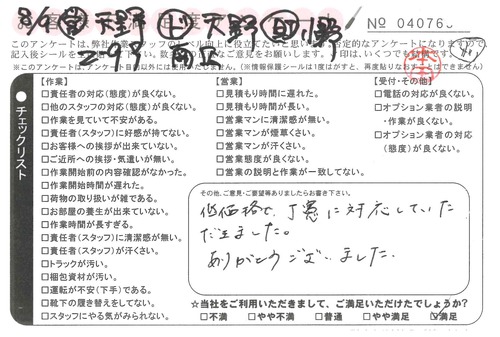 8/9 天野 天野
№ 04076
このアンケートは、弊社作業スタッフのレベル向上に役立てたいと思い
記入後シールを
(※このアンケートは、アンケート目的以外には使用いたしません。(※情報保護シールは1度はがすと、再度貼りなおすことはできません)
チェックリスト
【作業】
□責任者の対応(態度)が良くない。
□他のスタッフの対応(態度)が良くない。
□作業を見ていて不安がある。
□責任者(スタッフ)に好感が持てない。
□お客様への挨拶が出来ていない。
□ご近所への挨拶・気遣いが無い。
□作業開始前の内容確認がなかった。
□作業開始時間が遅れた。
□荷物の取り扱いが雑である。
□お部屋の養生が出来ていない。
□作業時間が長すぎる。
□責任者(スタッフ)に清潔感が無い。
□責任者(スタッフ)が汗くさい。
□トラックが汚い。
□梱包資材が汚い。
□運転が不安(下手)である。
□靴下の履き替えをしてない。
□スタッフにやる気がみられない。
【営業】
□見積もり時間に遅れた。
□見積もり時間が長い。
□営業マンに清潔感が無い。
□営業マンが煙草くさい。
□営業マンが汗くさい。
□営業態度が良くない。
□営業の説明と作業が一致してない。
【受付・その他】
□電話の対応が良くない。
□オプション業者の説明
・作業が良くない。
□オプション業者の対応
(態度)が良くない。
その他、ご意見・ご要望等ありましたらお書き下さい。
低価格で、丁寧に対応していた
だきました。
ありがとうございました。
☆当社をご利用いただきまして、ご満足いただけたでしょうか?
□不満 □やや不満 □普通 □やや満足 ☑満足